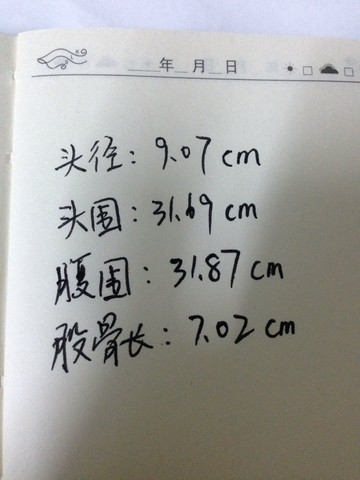 年 月 日
头径: 9.07 cm
头围: 31.69 cm
腹围: 31.87 cm
股骨长: 7.02 cm